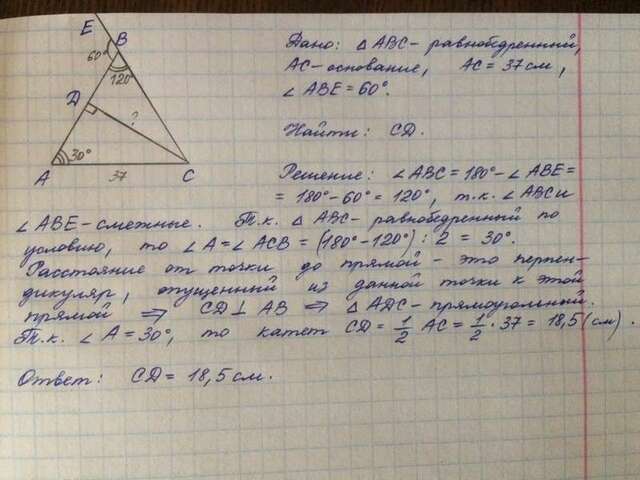 E
B
60°
120°
D
?
30°
A
37
C
Дано: △ ABC - равнобедренный,
AC - основание, AC = 37 см,
∠ ABE = 60°.
Найти: CD.
Решение: ∠ ABC = 180° - ∠ ABE =
= 180° - 60° = 120°, т.к. ∠ ABC и
∠ ABE - смежные. Т.к. △ ABC - равнобедренный по
условию, то ∠ A = ∠ ACB = (180° - 120°) : 2 = 30°.
Расстояние от точки до прямой - это перпен-
дикуляр, опущенный из данной точки к этой
прямой ⇒ CD ⊥ AB ⇒ △ ADC - прямоугольный.
Т.к. ∠ A = 30°, то катет CD = 1/2 AC = 1/2 · 37 = 18,5 (см).
Ответ: CD = 18,5 см.